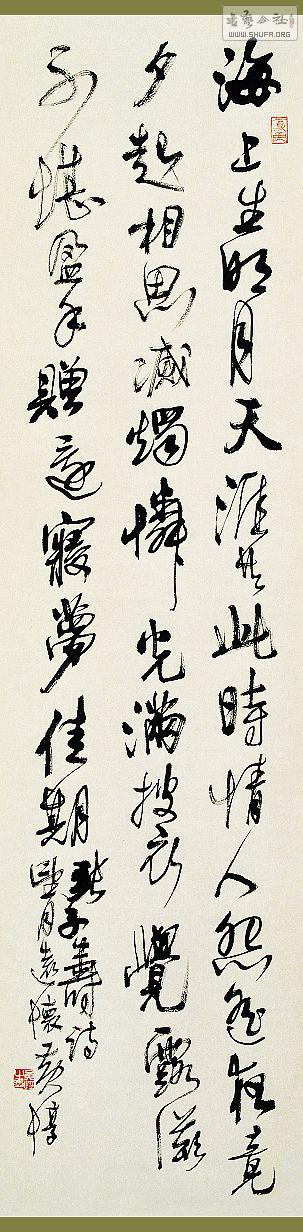 海上生明月天涯共此時情人怨遙夜竟
夕起相思滅燭憐光滿披衣覺露滋
不堪盈手贈還寢夢佳期
張子壽詩
望月遠懷黃惇
书艺公社
WWW.SHUFA.ORG